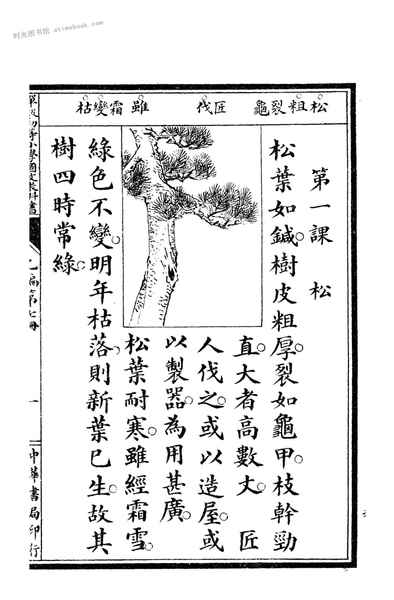 时光图书馆 · atimebook.com
松粗裂龜 匠伐 雖 霜變枯
第一課 松
松葉如鍼。樹皮粗厚。裂如龜甲。枝幹勁
直。大者高數丈。匠
人伐之。或以造屋。或
以製器。為用甚廣。
松葉耐寒。雖經霜雪。
綠色不變。明年枯落。則新葉已生。故其
樹四時常綠。
初等小學國文教科書
編第七冊
一
中華書局印行